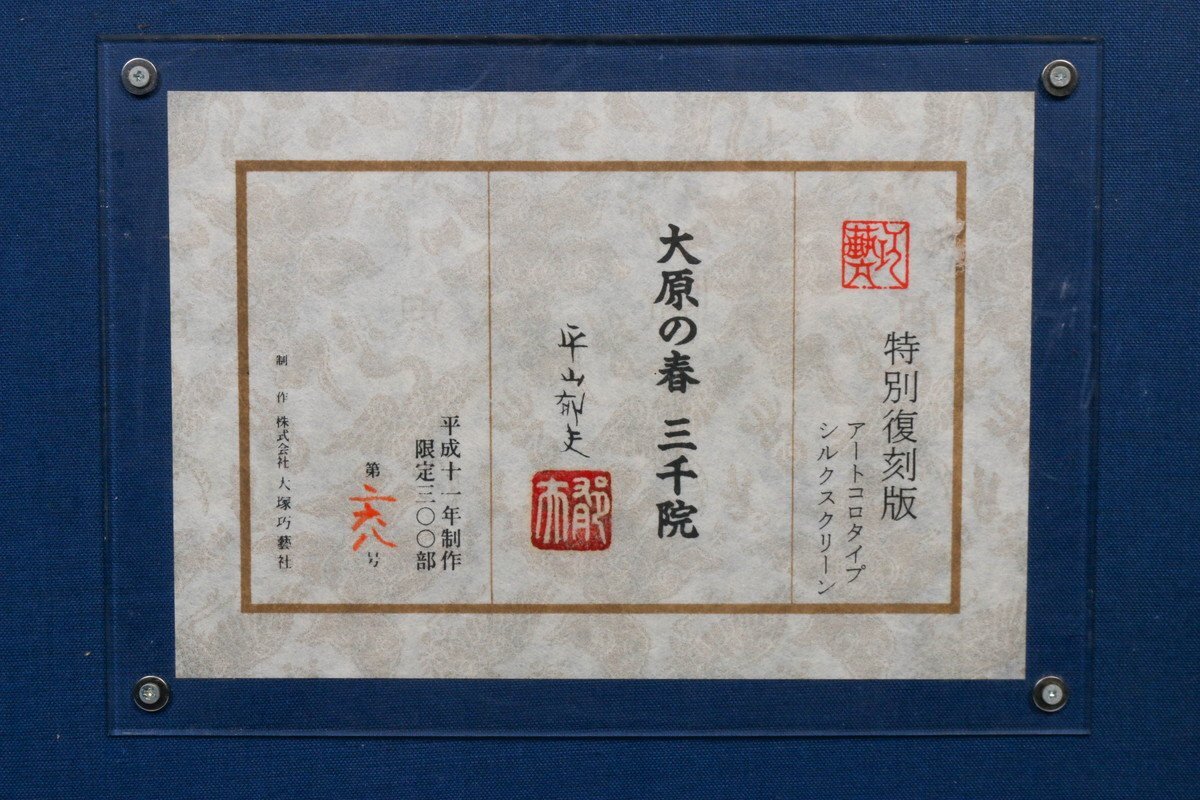 特別復刻版
アートコロタイプ
シルクスクリーン
大原の春 三千院
平山郁夫
平成十一年制作
限定三〇〇部
第二六八号
制 作 株式会社 大塚巧藝社